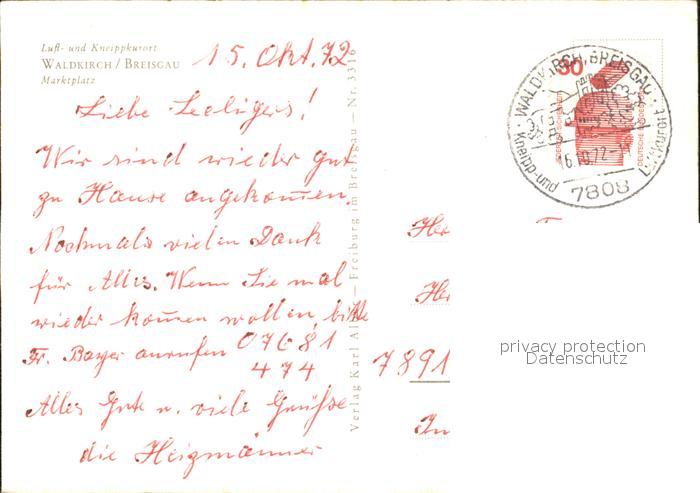 Luft- und Kneippkurort
WALDKIRCH / BREISGAU
Marktplatz
15. Okt. 72
Liebe Seeligers!
Wir sind wieder gut
zu Hause angekommen.
Nochmals vielen Dank
für Alles. Wenn Sie mal
wieder kommen wollen, bitte
Fr. Bayer anrufen 07681
474
Alles Gute u. viele Grüße
die Heizmänner
Verlag Karl Al — Freiburg im Breisgau — Nr. 3316
30
DEUTSCHE BUNDESPOST
WALDKIRCH, BREISGAU
Kneipp- und Luftkurort
16.10.72
7808
Her
Her
7891
In
privacy protection
Datenschutz